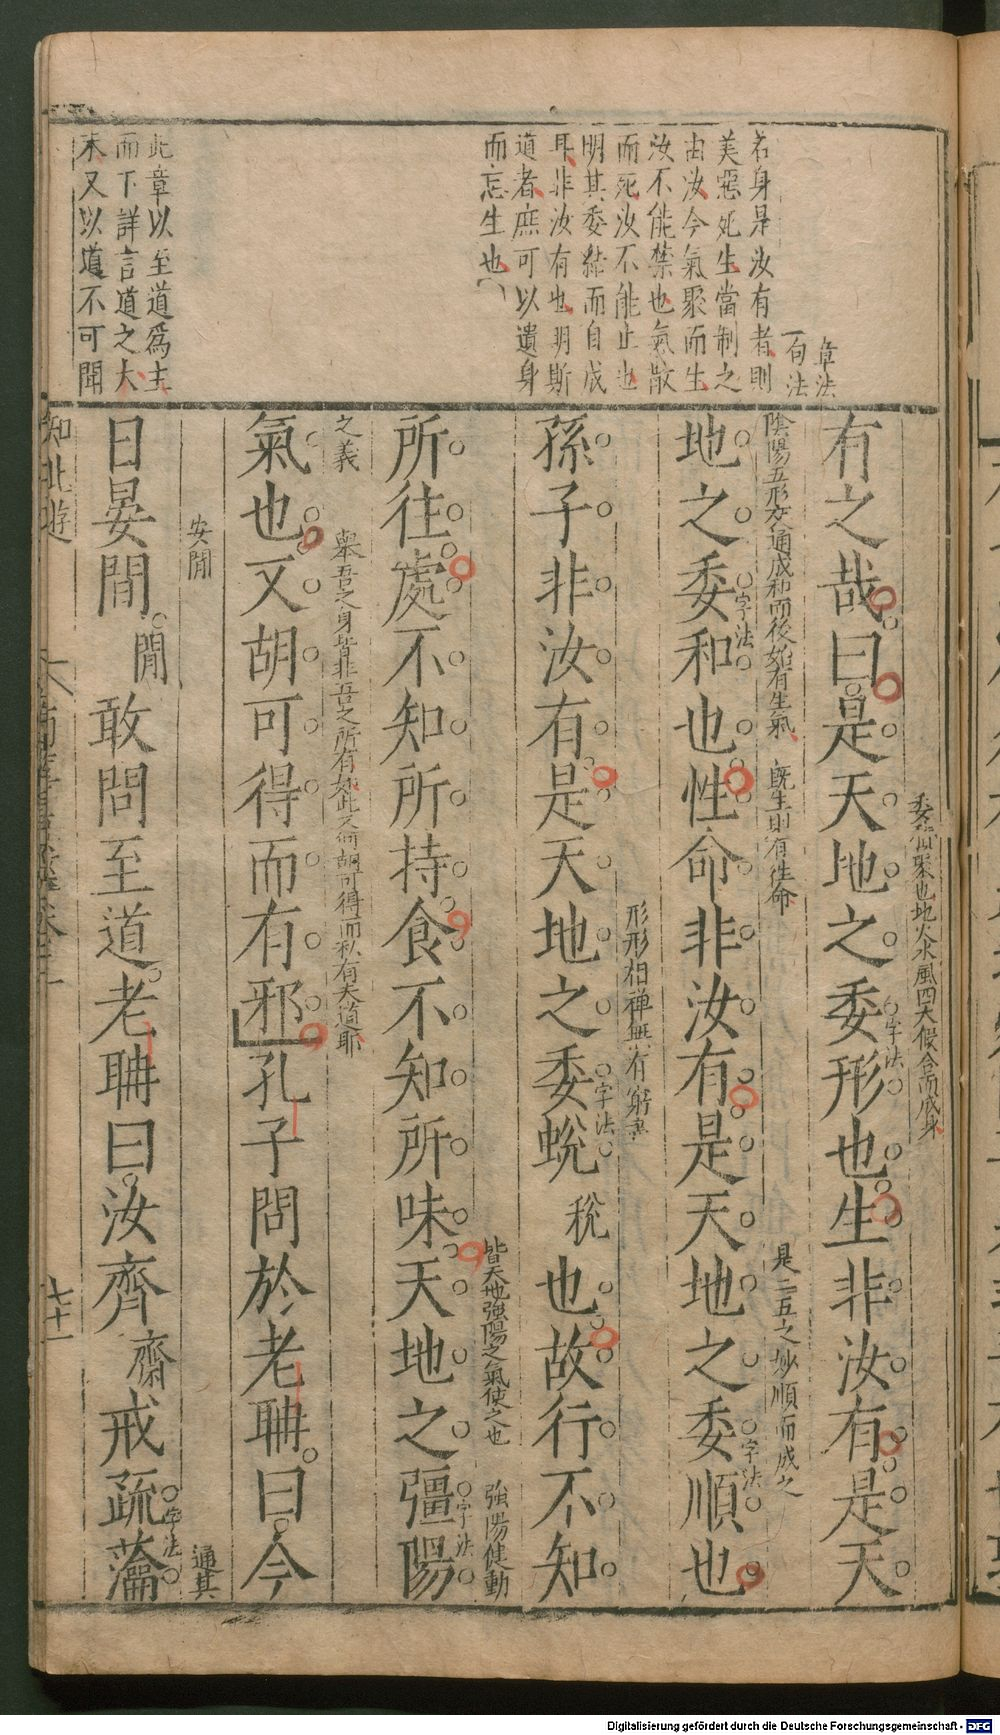 若身是汝有者則
美惡死生當制之
由汝今氣聚而生
汝不能禁也氣散
而死汝不能止也
明其委結而自成
耳非汝有也明斯
道者庶可以遺身
而忘生也
此章以至道爲主
而下詳言道之大
末又以道不可聞
章法
一句法
委 聚也地火水風四大假合而成身
有之哉曰是天地之委形也生非汝有是天
字法
陰陽五形交通成和而後始有生氣 旣生則有性命 是二五之妙順而成之
地之委和也性命非汝有是天地之委順也
字法
字法
形形相禪無有窮盡
孫子非汝有是天地之委蛻稅也故行不知
字法
皆天地強陽之氣使之也 強陽健動
所往處不知所持食不知所味天地之彊陽
字法
之義 舉吾之身皆非吾之所有如此又何胡可得而私有夫道耶
氣也又胡可得而有邪孔子問於老聃曰今
安閒 通其
日晏閒閒敢問至道老聃曰汝齊齋戒疏瀹
字法
知北遊
七十一
Digitalisierung gefördert durch die Deutsche Forschungsgemeinschaft - DFG